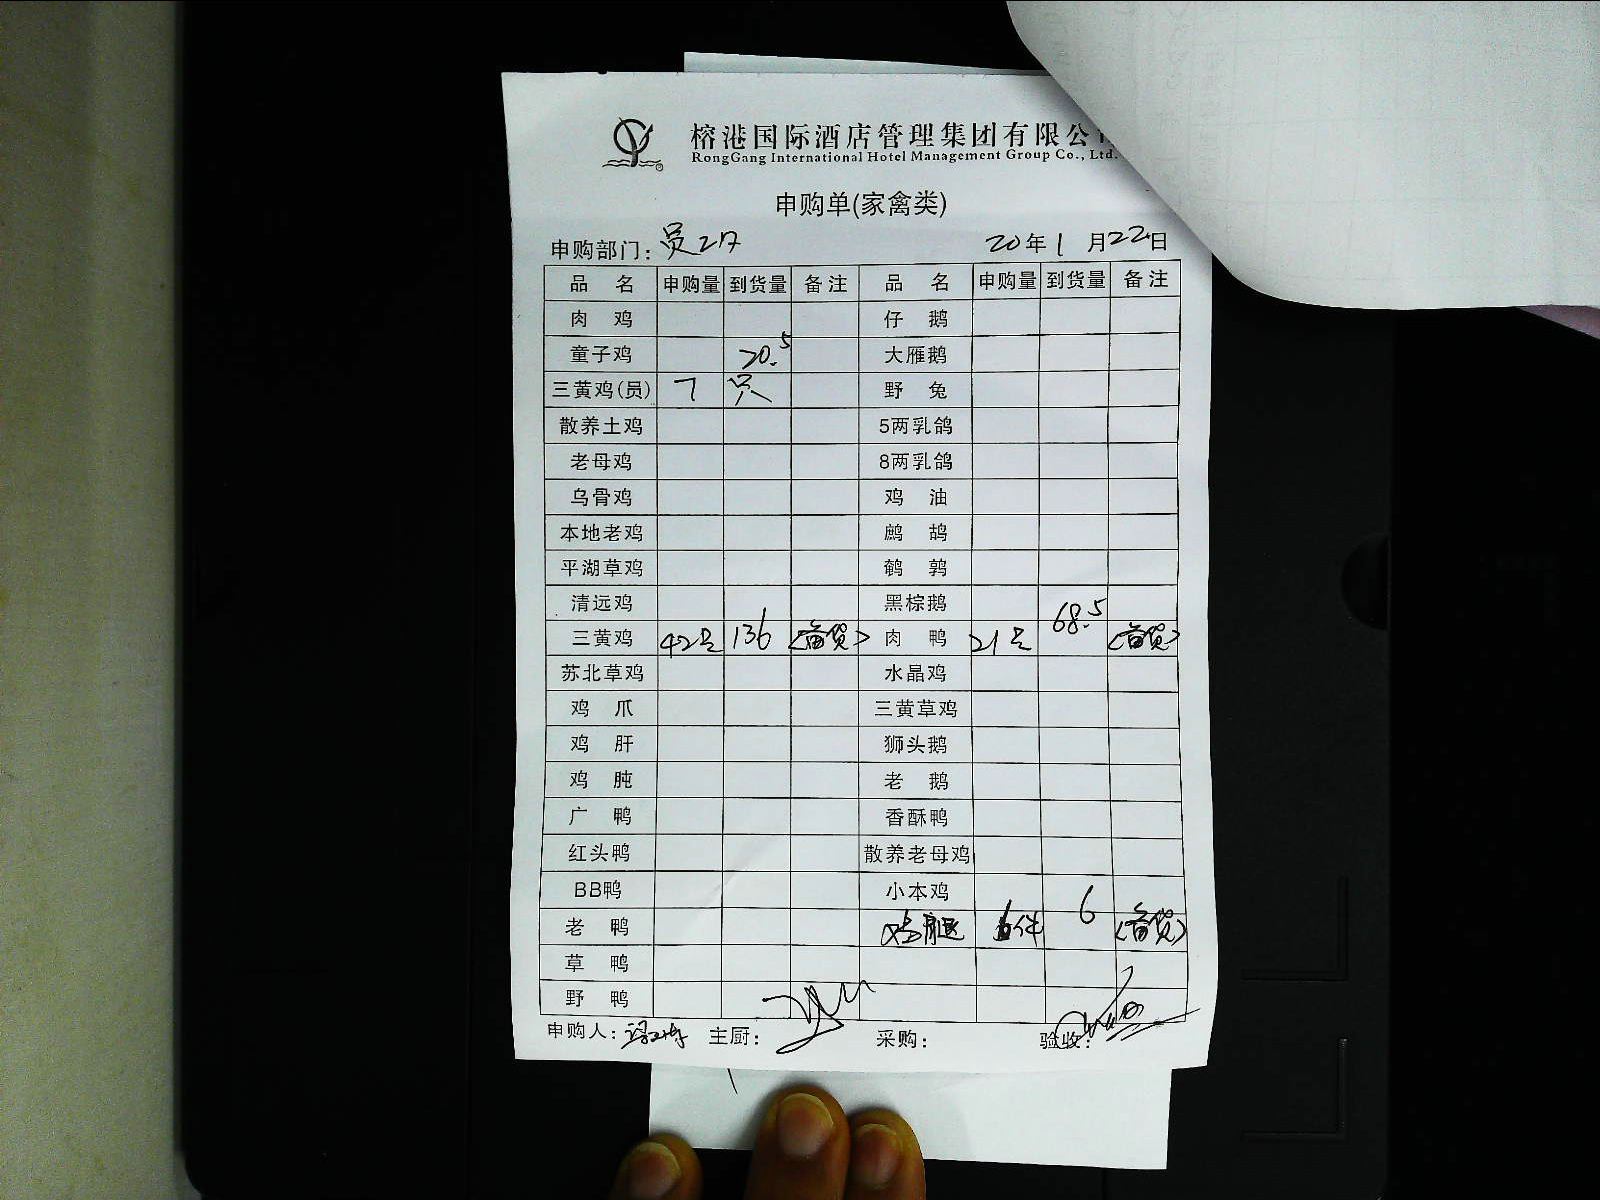 榕港国际酒店管理集团有限公
RongGang International Hotel Management Group Co., Ltd.
申购单(家禽类)
申购部门: 员工 20年1月22日
品名 申购量 到货量 备注 品名 申购量 到货量 备注
肉鸡 仔鹅
童子鸡 20.5 大雁鹅
三黄鸡(员) 7只 野兔
散养土鸡 5两乳鸽
老母鸡 8两乳鸽
乌骨鸡 鸡油
本地老鸡 鹧鸪
平湖草鸡 鹌鹑
清远鸡 黑棕鹅
三黄鸡 42只 136 (备货) 肉鸭 21只 68.5 (备货)
苏北草鸡 水晶鸡
鸡爪 三黄草鸡
鸡肝 狮头鹅
鸡肫 老鹅
广鸭 香酥鸭
红头鸭 散养老母鸡
BB鸭 小本鸡
老鸭 鸡腿 6件 6 (备货)
草鸭
野鸭
申购人: 主厨: 采购: 验收: